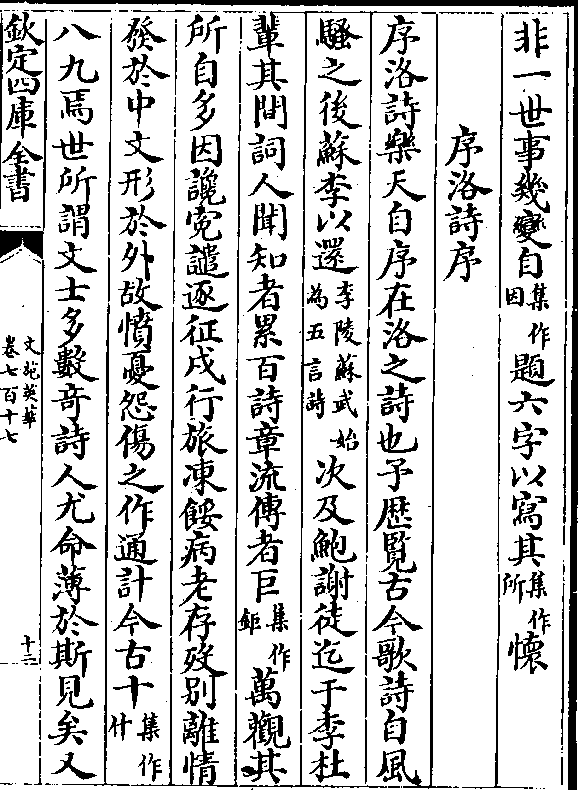 非一世事幾變自集作因題六字以寫其集作所懷
序洛詩序
序洛詩樂天自序在洛之詩也予歷覽古今歌詩自風
騷之後蘇李以還李陵蘇武始為五言詩次及鮑謝徒迄于李杜
輩其間詞人聞知者累百詩章流傳者巨集作鉅萬觀其
所自多因讒寃譴逐征戍行旅凍餒病老存歿别離情
發於中文形於外故憤憂怨傷之作通計今古十集作什
八九焉世所謂文士多數竒詩人尤命薄於斯見矣又
欽定四庫全書
文苑英華
卷七百十七
十三